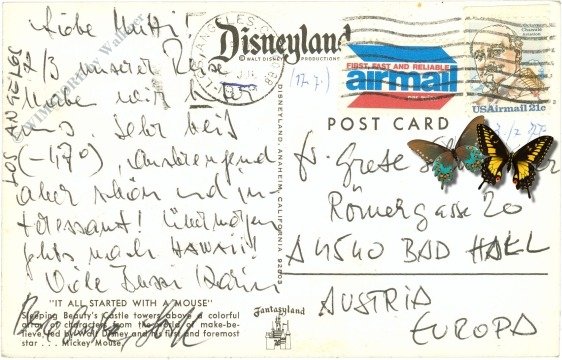 Liebe Mutti!
2/3 unserer Reise
haben wir hinter
uns. Sehr heiß
(-47°), anstrengend
aber schön und in-
teressant! Übermorgen
gehts nach HAWAII!
Viele Bussi Karin
LOS ANGELES
"IT ALL STARTED WITH A MOUSE"
Sleeping Beauty's Castle towers above a colorful
array of characters from the world of make-be-
lieve, led by Walt Disney and his first and foremost
star . . . Mickey Mouse.
Disneyland
© WALT DISNEY PRODUCTIONS
DISNEYLAND, ANAHEIM, CALIFORNIA 92803
Fantasyland
FIRST, FAST AND RELIABLE
airmail
Octave Chanute
Aviation
USAirmail 21c
POST CARD
Fr. Grete
Römergasse 20
A 4540 BAD HALL
AUSTRIA
EUROPA